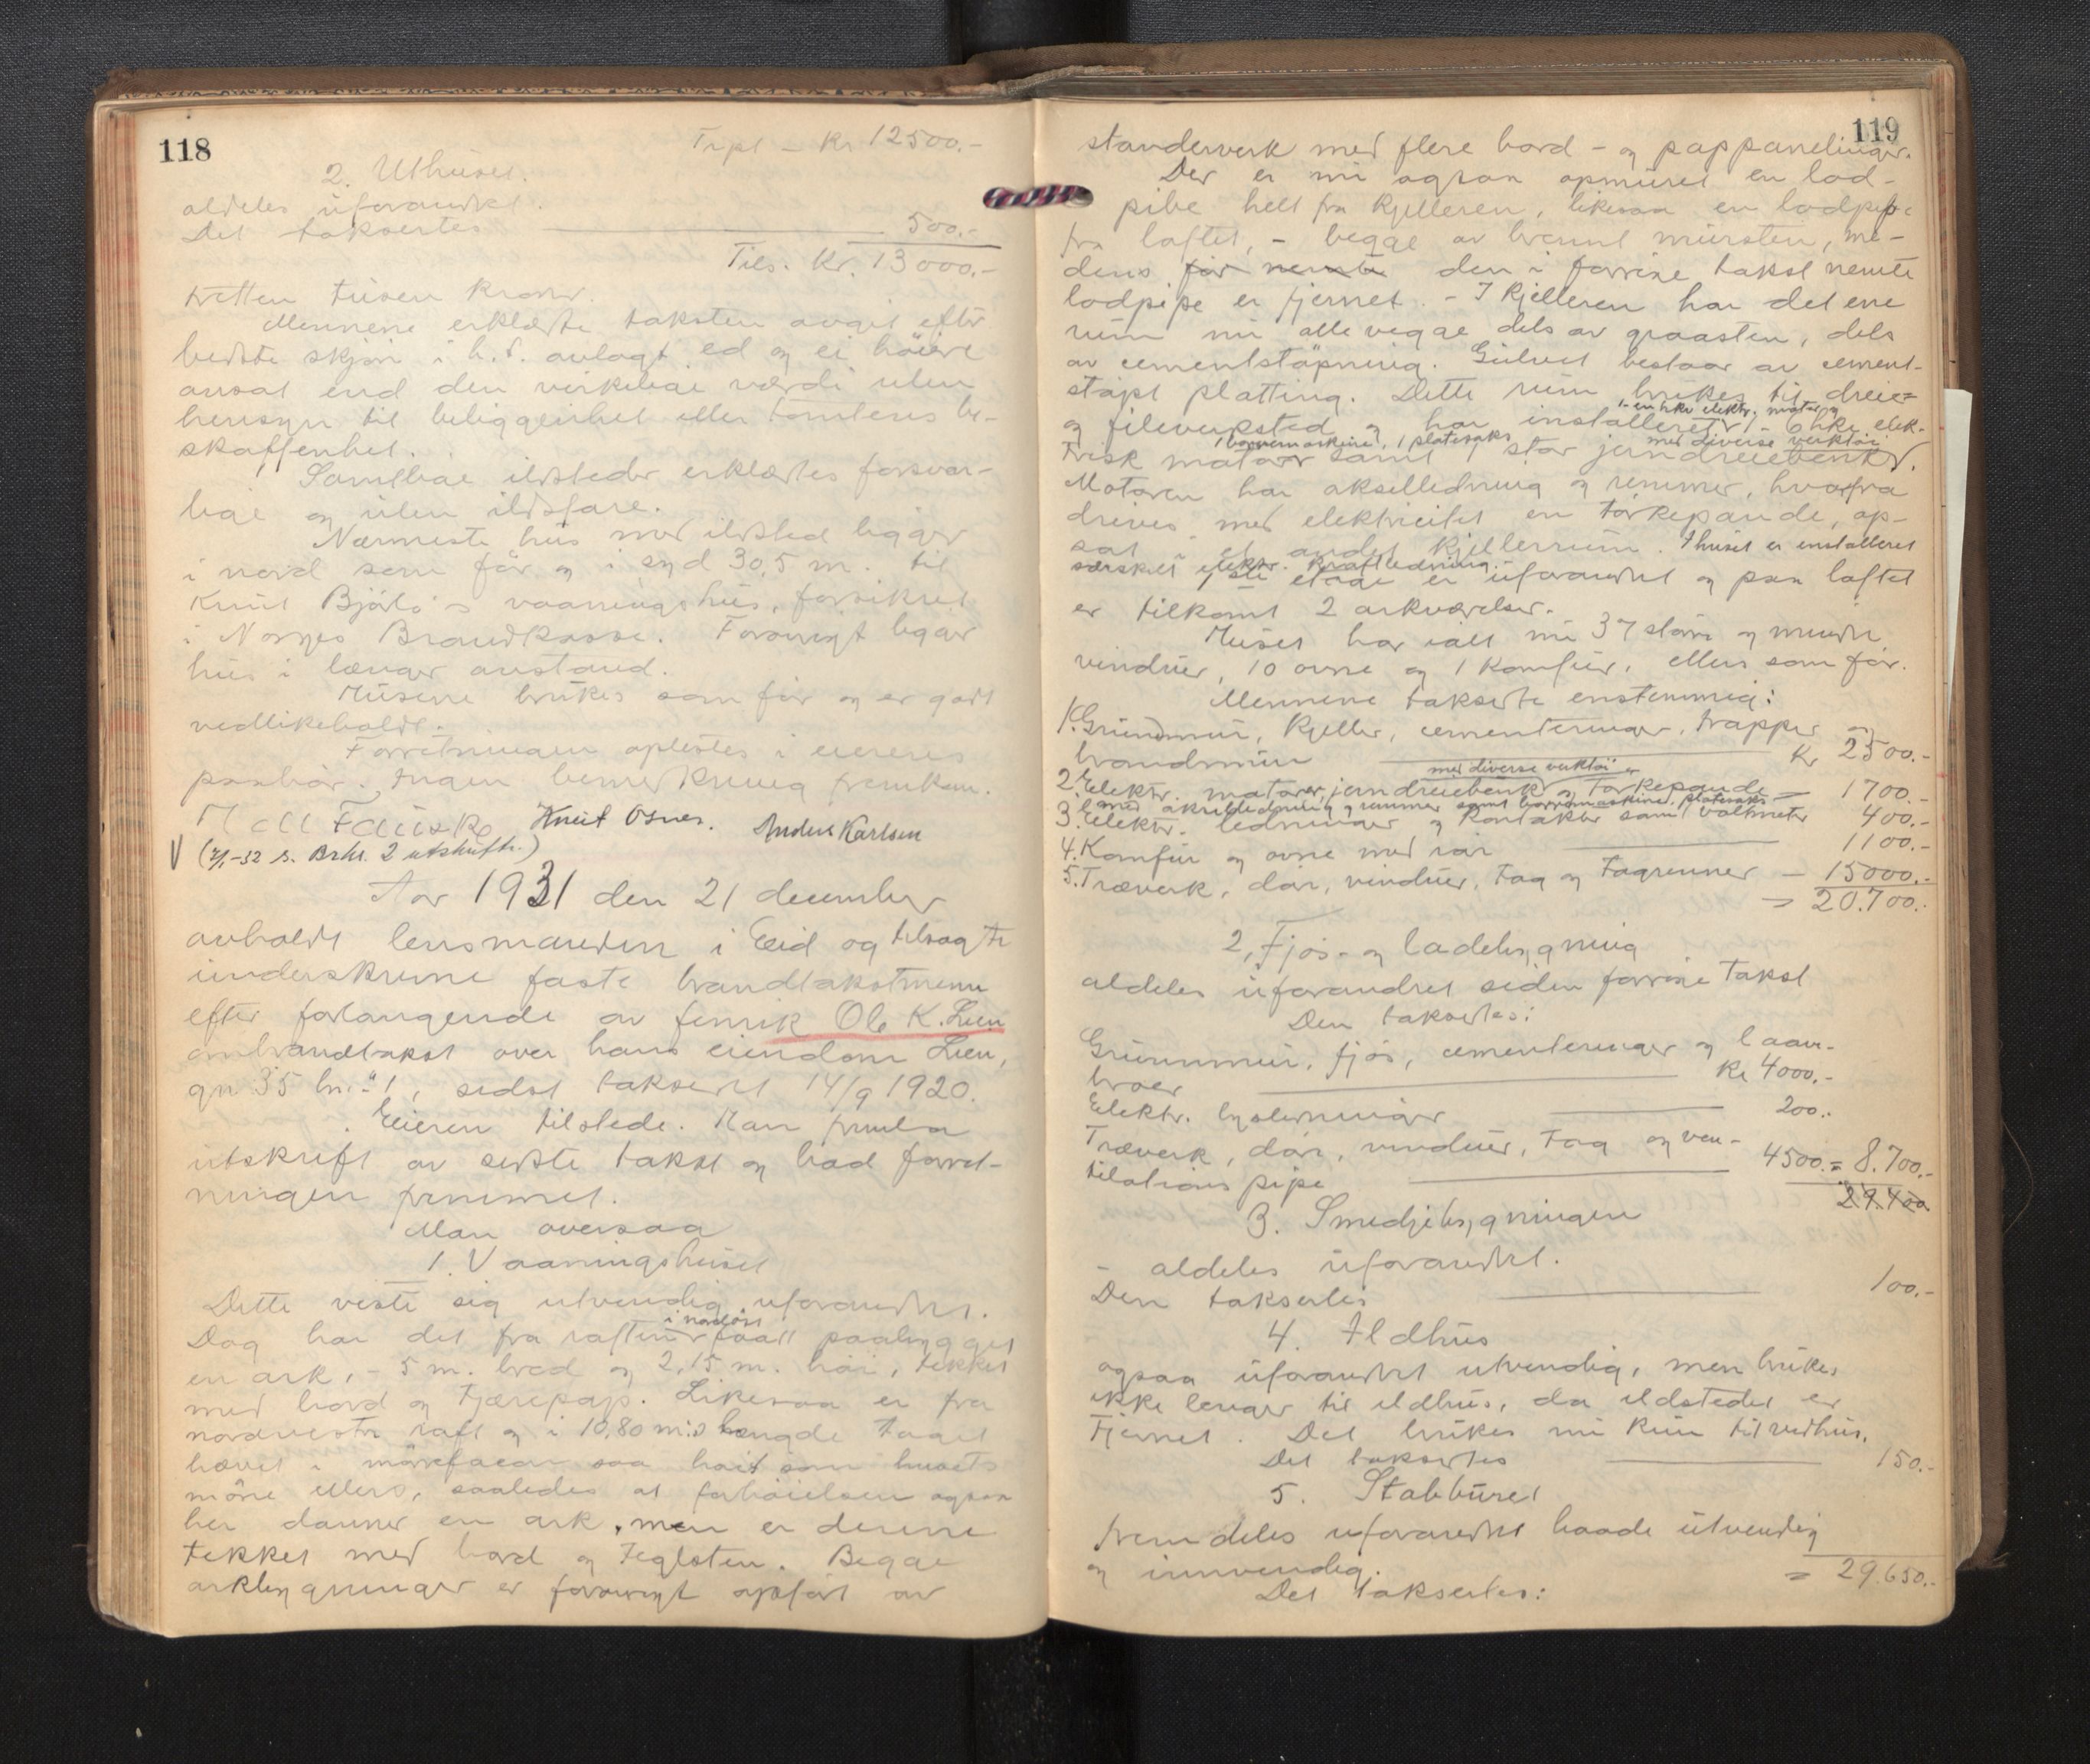 118
Trpt - Kr 12500.-
2. Uthuset.
aldeles uforandret.
Det taksertes 500.-
Tils. Kr. 13000.-
tretten tusen kroner.
Mennene erklærte taksten avgit efter
bedste skjøn i h.t. avlagt ed og ei høiere
ansat end den virkelige værdi uten
hensyn til beliggenhet eller tomtens be-
skaffenhet.
Samtlige ildsteder erklærtes forsvar-
lige og uten ildsfare.
Nærmeste hus med ildsted ligger
i nord som før og i syd 30,5 m. til
Knut Bjørlo's vaaningshus, forsikret
i Norges Brandkasse. Forøvrigt ligger
hus i længer avstand.
Husene brukes som før og er godt
vedlikeholdt.
Forretningen oplestes i eierens
paahør. Ingen bemerkning fremkom.
Fauske Knut Osnes. Anders Karlsen
V (7/1-32 s. Brk. 2 utskrifter.)
Aar 1931 den 21 december
avholdt lensmanden i Eid og tilsagte
underskrevne faste brandtakstmenn
efter forlangende av fenrik Ole K. Lien
brandtakst over hans eiendom Lien,
gn 35 bn. 1, sidst taksert 14/9 1920.
Eieren tilstede. Han fremla
utskrift av siste takst og bad forret-
ningen fremmet.
Man oversaa
1. Vaaningshuset
Dette viste sig utvendig uforandret.
Dog har det fra raften i nordøst faatt paabygget
en ark, - 5 m. bred og 2,15 m. høi, tekket
med bord og tjærepap. Likesaa er fra
nordvestre raft og i 10,80 m:s længde taget
hævet i saa høit som husets
møne ellers, saaledes at forhøielsen ogsaa
her danner en ark, men er denne
tekket med bord og teglsten. Begge
arkbygninger er forøvrigt opført av
119
standerverk med flere bord - og pappanelinger.
Der er nu ogsaa opmuret en lod-
pibe helt fra kjelleren, likesaa en lodpipe
fra loftet, - begge av brennt mursten, me-
dens før nevnte den i forrige takst nevnte
lodpipe er fjernet. - I kjelleren har det ene
rum nu alle vegge dels av graasten, dels
av cementstøpning. Gulvet bestaar av cement-
støpt platting. Dette rum brukes til dreie-
og fileverksted og har installeret 1 - en hkr elektr. motor og 1 - 6 hkr. elek-
trisk motor samt 1 boremaskine, 1 platesaks 1 stor jerndreiebenk med diverse verktøi.
Motoren har akselledning og remmer, hvorfra
drives med elektricitet en tørkepande, op-
sat i et andet kjellerrum. I huset er installeret
særskilt elektr. kraftledning.
1ste etage er uforandret og paa loftet
er tilkomt 2 arkværelser.
Huset har ialt nu 37 større og mindre
vinduer, 10 ovne og 1 komfur, ellers som før.
Mennene takserte enstemmig:
1. Grundmur, kjeller, cementeringer, trapper og
brandmur Kr 2500.-
2. Elektr. motorer, jerndreiebenk med diverse verktøi og tørkepande = 1700.-
med akselledning og remmer samt boremaskine, platesaks
3. Elektr. ledninger og kontakter samt voltmeter 400.-
4. Komfur og ovne med rør 1100.-
5. Træverk, dør, vinduer, tag og tagrenner - 15000.-
= 20.700.-
2. Fjøs- og ladebygning
aldeles uforandret siden forrige takst
Den taksertes:
Grunnmur, fjøs, cementeringer og laan-
broer Kr 4000.-
Elektr. lysledninger 200.-
Træverk, dør, vinduer, tag og ven-
tilations pipe 4500.- = 8.700.-
29.400
3. Smedjebygningen
- aldeles uforandret.
Den taksertes 100.-
4. Ildhus
ogsaa uforandret utvendig, men brukes
ikke lenger til ildhus, da ildstedet er
fjernet. Det brukes nu kun til vedhus.
Det taksertes 150.-
5. Stabburet
fremdeles uforandret baade utvendig
og innvendig. = 29.650.-
Det taksertes: